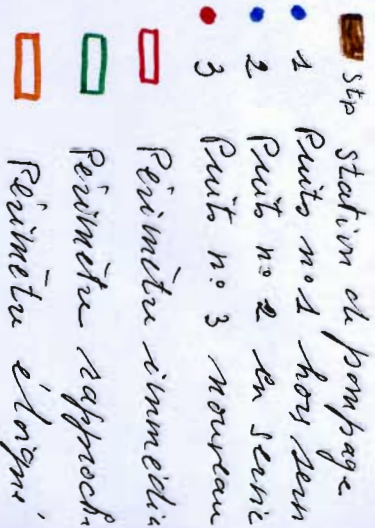 Stp Station de pompage
1 Puits n°1 hors serv
2 Puits n°2 en servic
3 Puits n°3 nouveau
Périmètre immédia
Périmètre rapproch
Périmètre éloigné